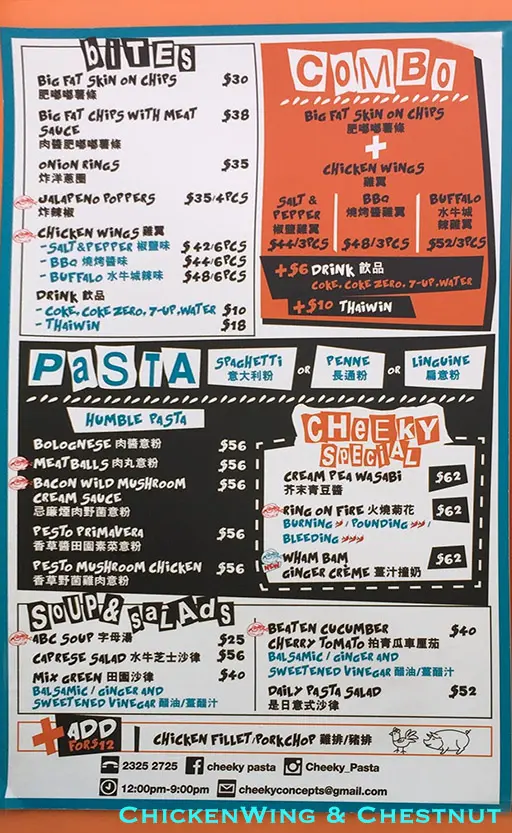 BITES
BIG FAT SKIN ON CHIPS $30
肥嘟嘟薯條
BIG FAT CHIPS WITH MEAT SAUCE $38
肉醬肥嘟嘟薯條
ONION RINGS $35
炸洋蔥圈
JALAPENO POPPERS $35/4PCS
炸辣椒
CHICKEN WINGS 雞翼
- SALT & PEPPER 椒鹽味 $42/6PCS
- BBQ 燒烤醬味 $44/6PCS
- BUFFALO 水牛城辣味 $48/6PCS
DRINK 飲品
- COKE, COKE ZERO, 7-UP, WATER $10
- THAIWIN $18
COMBO
BIG FAT SKIN ON CHIPS
肥嘟嘟薯條
+
CHICKEN WINGS
雞翼
SALT & PEPPER
椒鹽雞翼
$44/3PCS
BBQ
燒烤醬雞翼
$48/3PCS
BUFFALO
水牛城
辣雞翼
$52/3PCS
+$6 DRINK 飲品
COKE, COKE ZERO, 7-UP, WATER
+$10 THAIWIN
PASTA
SPAGHETTI
意大利粉
OR
PENNE
長通粉
OR
LINGUINE
扁意粉
HUMBLE PASTA
BOLOGNESE 肉醬意粉 $56
MEATBALLS 肉丸意粉 $56
BACON WILD MUSHROOM $56
CREAM SAUCE
忌廉煙肉野菌意粉
PESTO PRIMAVERA $56
香草醬田園素菜意粉
PESTO MUSHROOM CHICKEN $56
香草野菌雞肉意粉
CHEEKY
SPECIAL
CREAM PEA WASABI $62
芥末青豆醬
RING ON FIRE 火燒菊花 $62
BURNING / POUNDING /
BLEEDING
NEW
WHAM BAM $62
GINGER CRÈME 薑汁撞奶
SOUP & SALADS
ABC SOUP 字母湯 $25
CAPRESE SALAD 水牛芝士沙律 $56
MIX GREEN 田園沙律 $40
BALSAMIC / GINGER AND
SWEETENED VINEGAR 醋油/薑醋汁
BEATEN CUCUMBER $40
CHERRY TOMATO 拍青瓜車厘茄
BALSAMIC / GINGER AND
SWEETENED VINEGAR 醋油/薑醋汁
DAILY PASTA SALAD $52
是日意式沙律
+ADD
FOR $12
CHICKEN FILLET/PORKCHOP 雞排/豬排
2325 2725 cheeky pasta Cheeky_Pasta
12:00pm-9:00pm cheekyconcepts@gmail.com
ChickenWing & Chestnut